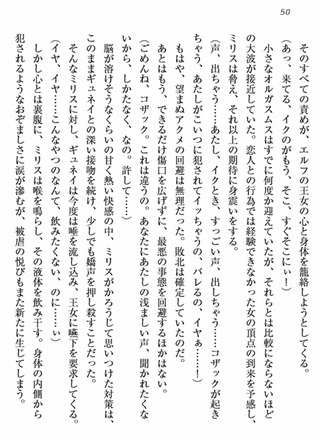 50
そのすべての責めが、エルフの王女の心と身体を籠絡しようとしてくる。
(あっ、来てる、イクのがもう、そこ、すぐそこにぃ!)
小さなオルガスムスはすでに何度か迎えていたが、それらとは比較にならないほど
の大波が接近していた。恋人との行為では経験できなかった女の頂点の到来を予感し、
ミリスは脅え、それ以上の期待に身震いをする。
(声、出ちゃう……あたし、イクとき、すっごい声、出しちゃう……コザックが起き
ちゃう、あたしがこいつに犯されてイッちゃうの、バレるの、イヤぁ……!)
もはや、望まぬアクメの回避は無理だった。敗北は確定していたのだ。
あとはもう、できるだけ傷口を広げずに、最悪の事態を回避するほかはない。
(ごめんね、コザック。これは違うの。あなたにあたしの浅ましい声、聞かれたくな
いから、しかたなく、なの。許して……)
脳が溶けそうなくらいの甘く熱い快感の中、ミリスがかろうじて思いついた対策は、
このままギュネイとの深い接吻を続け、少しでも嬌声を押し殺すことだった。
そんなミリスに対し、ギュネイは今度は唾を流し込み、王女に嚥下を要求してくる。
(イヤ、イヤ……こんなやつのなんて、飲みたくない、のに……ぃ)
しかし心とは裏腹に、ミリスは喉を鳴らし、その液体を飲み干す。身体の内側から
犯されるようなおぞましさに涙が滲むが、被虐の悦びもまた新たに生じてしまう。